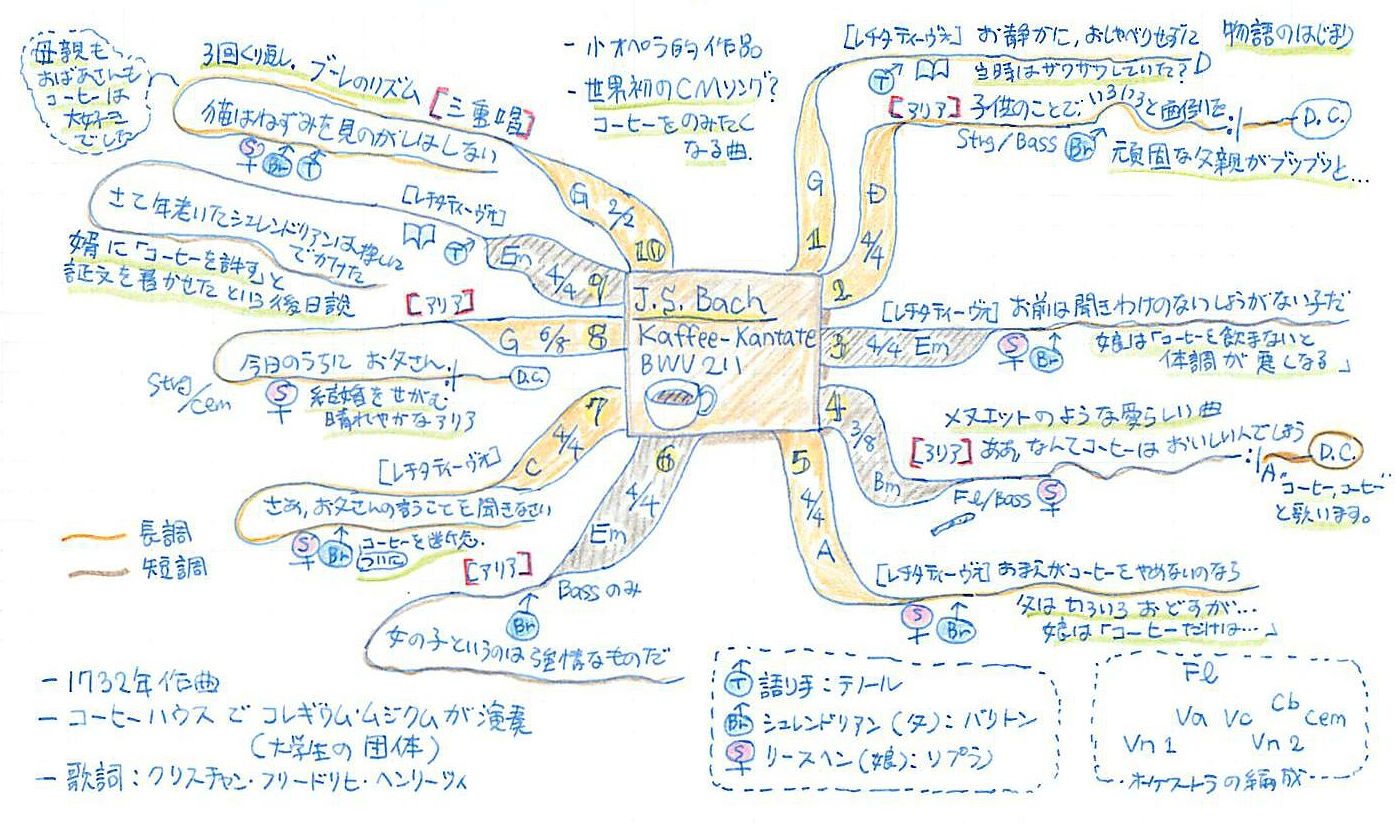 J.S. Bach
Kaffee-Kantate
BWV 211
- 小オペラ的作品
- 世界初のCMソング?
コーヒーをのみたく
なる曲.
1
G
[レチタティーヴォ] お静かに,おしゃべりせずに
物語のはじまり
T
当時はザワザワしていた?
D
2
D
4/4
[アリア] 子供のことで,いろいろと面倒を
:|
D.C.
Strg/Bass
Br
頑固な父親がブツブツと...
3
4/4
Em
[レチタティーヴォ] お前は聞きわけのないしょうがない子だ
S
Br
娘は「コーヒーを飲まないと
体調が悪くなる」
4
3/8
Bm
メヌエットのような愛らしい曲
[アリア] ああ,なんてコーヒーはおいしいんでしょう
:|
D.C.
Fl/Bass
S
A"
"コーヒー,コーヒー"
と歌います。
5
4/4
A
[レチタティーヴォ] おまえがコーヒーをやめないのなら
S
Br
父はいろいろおどすが...
娘は「コーヒーだけは...」
6
4/4
Em
[アリア]
Bassのみ
Br
女の子というのは強情なものだ
7
4/4
C
[レチタティーヴォ]
さあ,お父さんの言うことを聞きなさい
S
Br
コーヒーを断念.
ついに
8
6/8
G
[アリア]
今日のうちに お父さん,
:|
D.C.
Strg/cem
S
結婚をせがむ
晴れやかなアリア
9
4/4
Em
[レチタティーヴォ]
T
さて年老いたシュレンドリアンは探しに
でかけた
婿に「コーヒーを許す」と
証文を書かせたという後日談
10
2/2
G
3回くり返し. ブーレのリズム
[三重唱]
猫はねずみを見のがしはしない
S
Br
T
母親も
おばあさんも
コーヒーは
大好き
でした
長調
短調
- 1732年作曲
- コーヒーハウスでコレギウム・ムジクムが演奏
(大学生の団体)
- 歌詞:クリスチャン・フリードリヒ・ヘンリーツィ
T 語り手:テノール
Br シュレンドリアン(父):バリトン
S リースヘン(娘):ソプラノ
Fl
Va Vc Cb cem
Vn1 Vn2
オーケストラの編成